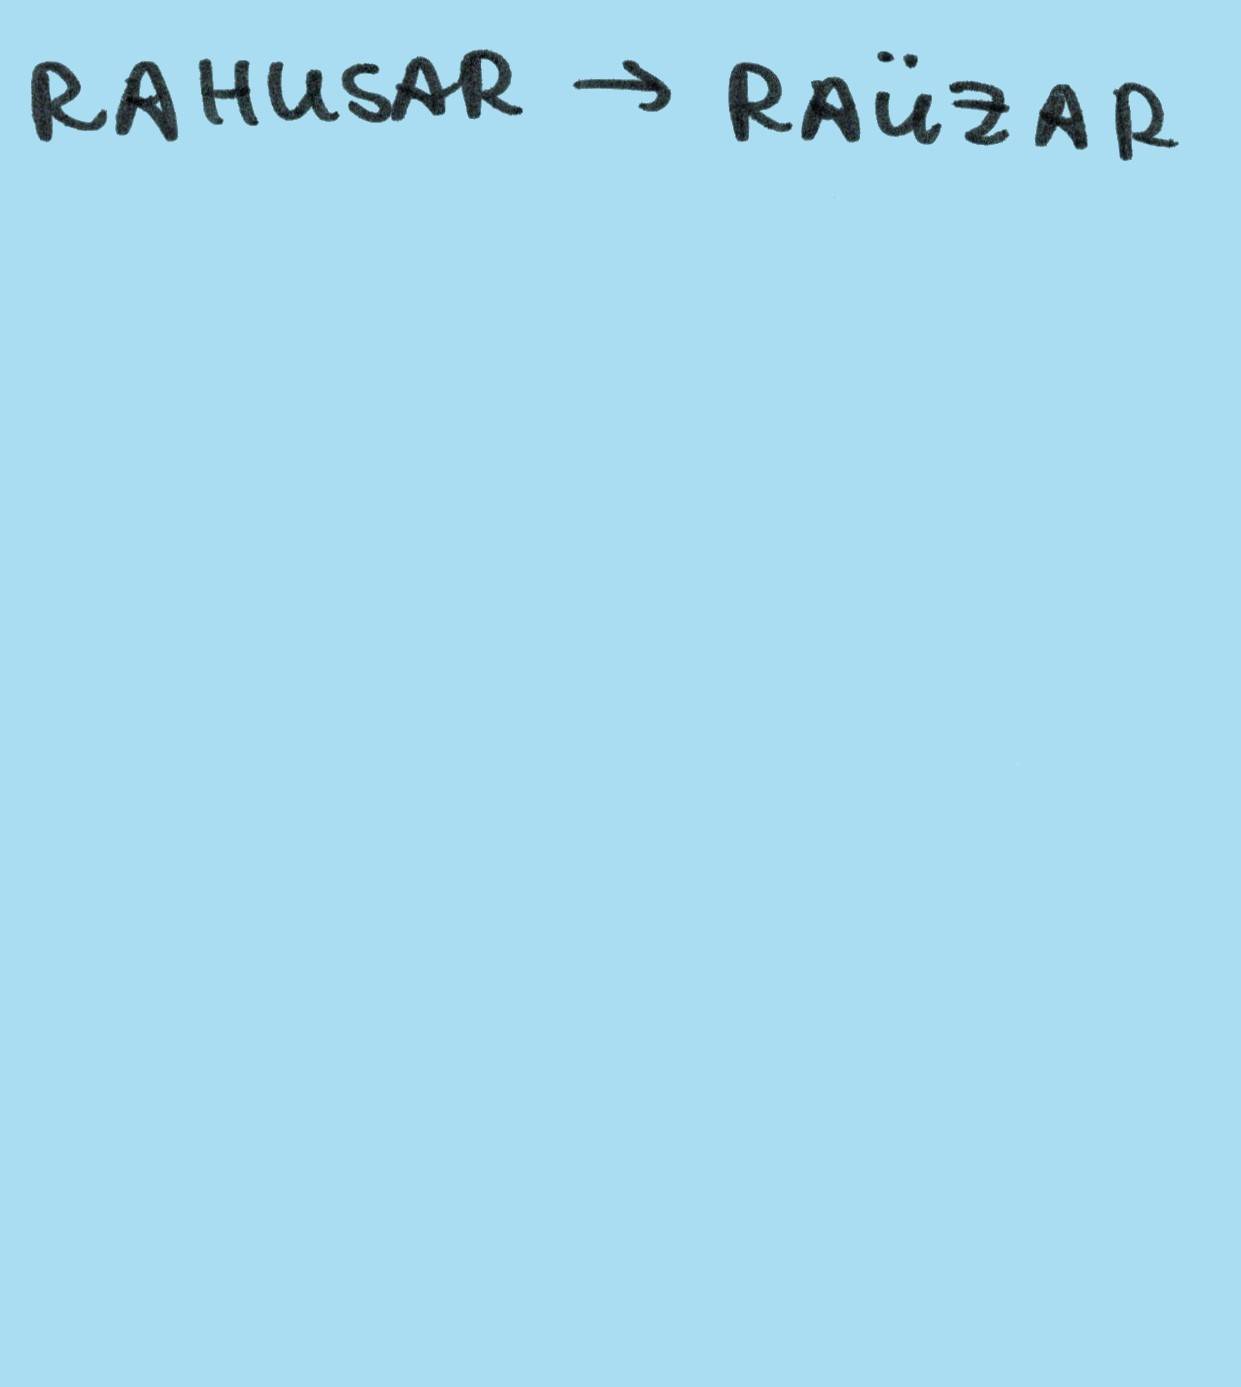 RAHUSAR → RAÜZAR